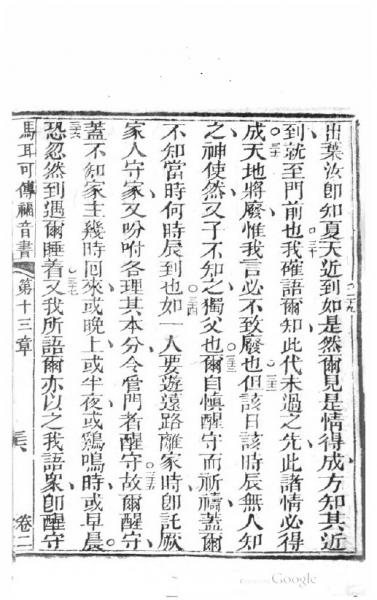 出葉汝即知夏天近到如是然爾見是情得成方知其近
二十九
到就至門前也我確語爾知此代未過之先此諸情必得
三十
成天地將廢惟我言必不致廢也但該日該時辰無人知
三十一
三十二
之神使然又子不知之獨父也爾自慎醒守而祈禱蓋爾
三十三
不知當時何時辰到也如一人要遊遠路離家時即託厥
三十四
家人守家又吩咐各理其本分令管門者醒守故爾醒守
三十五
蓋不知家主幾時回來或晚上或半夜或鷄鳴時或早晨
三十六
恐忽然到遇爾睡着又我所語爾亦以之我語衆即醒守
三十七
馬耳可傳福音書
第十三章
卷二
Google